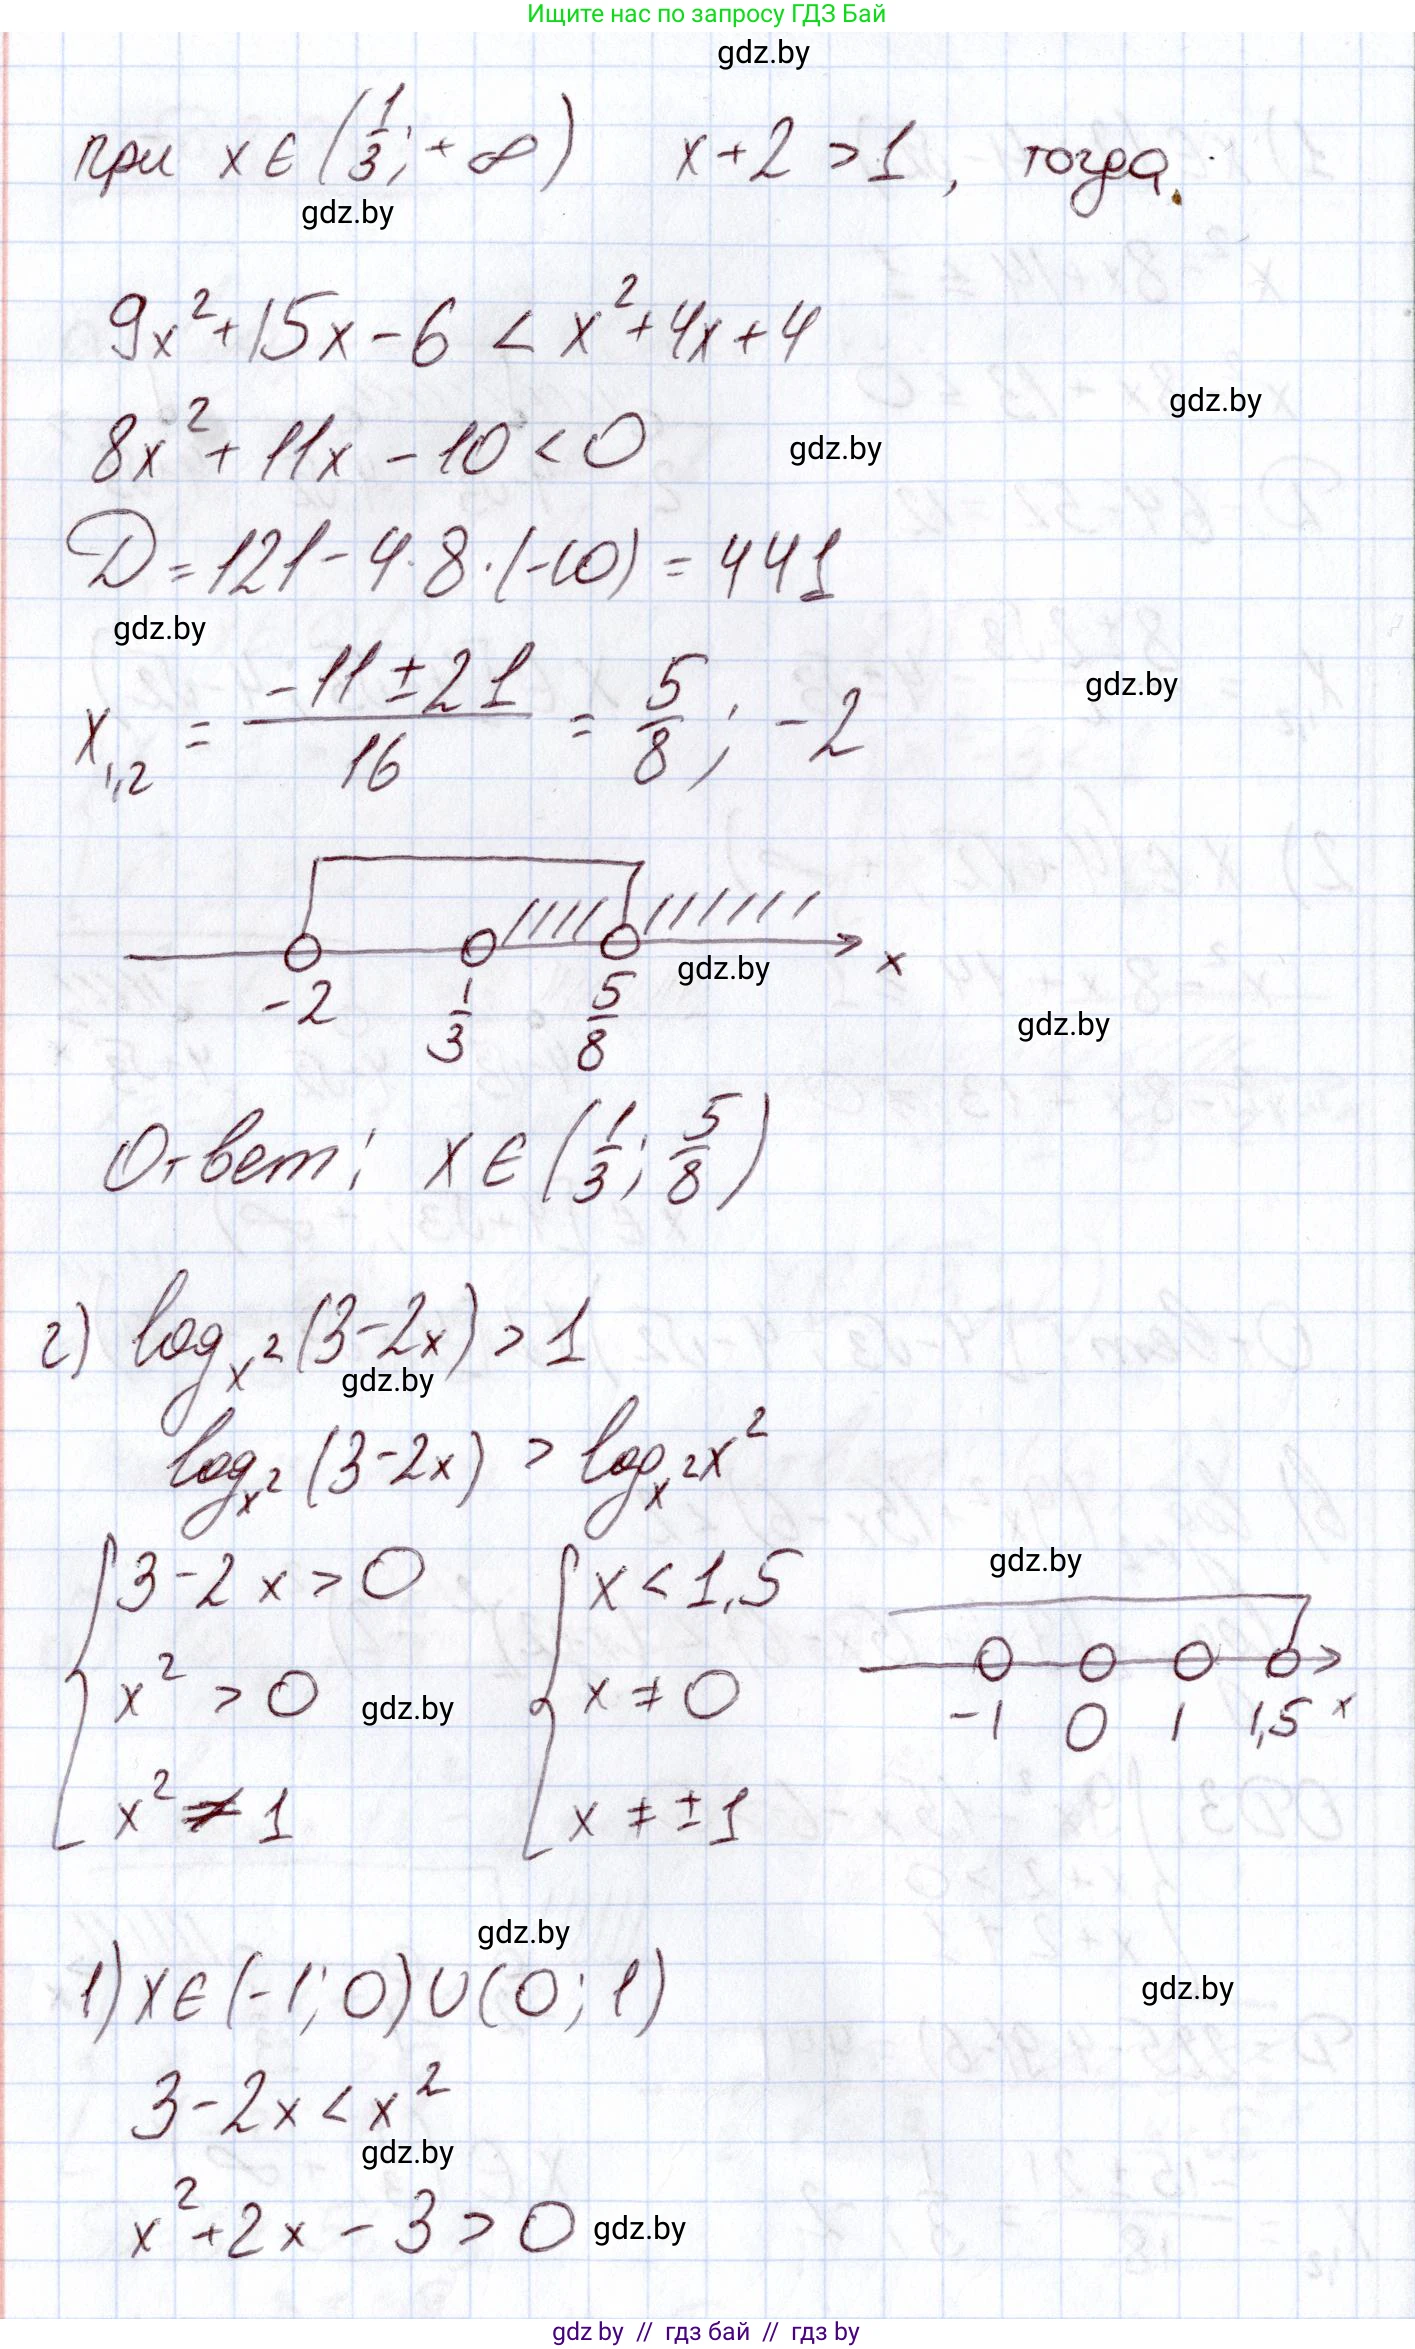 Ищите нас по запросу ГДЗ Бай
gdz.by
при x ∈ (1/3; +∞) x+2 > 1, тогда
gdz.by
9x²+15x-6 < x²+4x+4
gdz.by
8x²+11x-10 < 0
gdz.by
D = 121-4·8·(-10) = 441
gdz.by
x₁,₂ = (-11±21)/16 = 5/8; -2
gdz.by
gdz.by
x
-2 1/3 5/8
gdz.by
Ответ: x ∈ (1/3; 5/8)
г) log_x² (3-2x) > 1
gdz.by
log_x² (3-2x) > log_x² x²
{ 3-2x > 0 { x < 1,5
gdz.by
x² > 0 x ≠ 0
gdz.by
-1 0 1 1,5 x
x² ≠ 1 x ≠ ±1
gdz.by
1) x ∈ (-1; 0) ∪ (0; 1)
gdz.by
3-2x < x²
gdz.by
x²+2x-3 > 0
gdz.by
gdz.by // гдз бай // гдз by